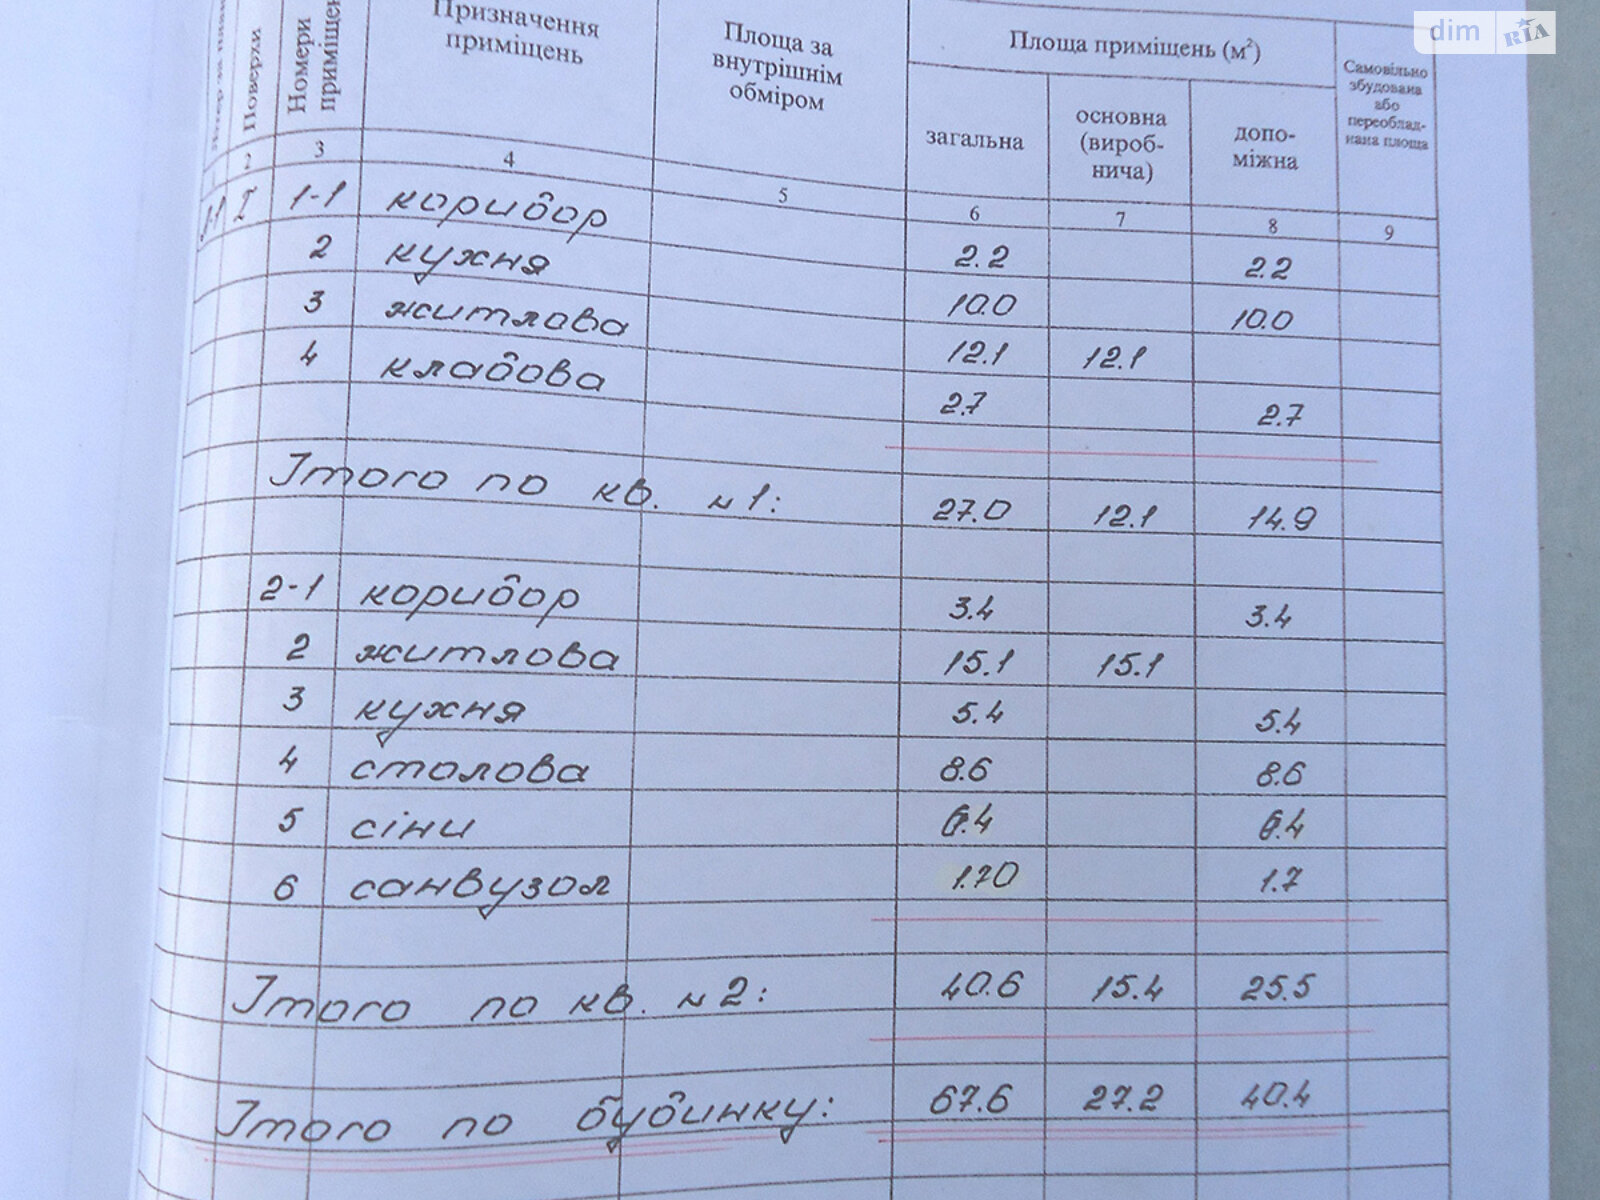 dim RIA
Поверхи
Номери приміщень
Призначення приміщень
Площа за внутрішнім обміром
Площа приміщень (м²)
загальна
основна (вироб-нича)
допо-міжна
Самовільно збудована або переоблад-нана площа
2 3 4 5 6 7 8 9
1-1 коридор 2.2 2.2
2 кухня 10.0 10.0
3 житлова 12.1 12.1
4 кладова 2.7 2.7
Ітого по кв. №1: 27.0 12.1 14.9
2-1 коридор 3.4 3.4
2 житлова 15.1 15.1
3 кухня 5.4 5.4
4 столова 8.6 8.6
5 сіни 6.4 6.4
6 санвузол 1.70 1.7
Ітого по кв. №2: 40.6 15.4 25.5
Ітого по будинку: 67.6 27.2 40.4